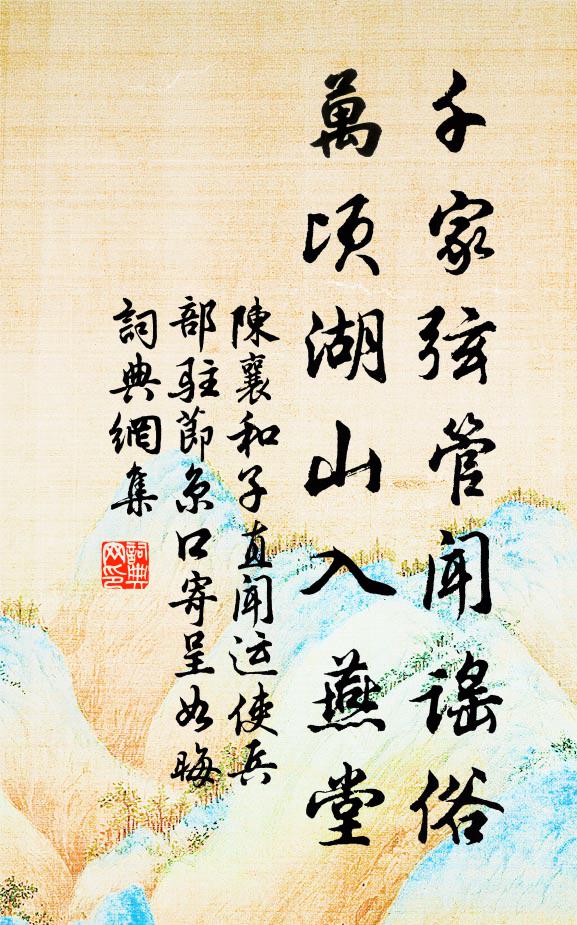 千家弦管闻谣俗
萬顷湖山入燕堂
陳襄和子直闻运使兵
部駐節京口寄呈如晦
詞典網集
詞典
网印